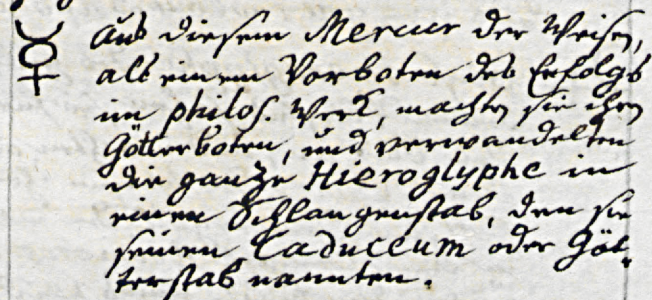 ☿ Aus diesem Mercur der Weisen,
als einem Vorboten des Erfolgs
im philos. Werk, machten sie ihren
Götterboten, und verwandelten
die ganze Hieroglyphe in
einen Schlangenstab, den sie
seinen Caduceum oder Göt-
terstab nannten.